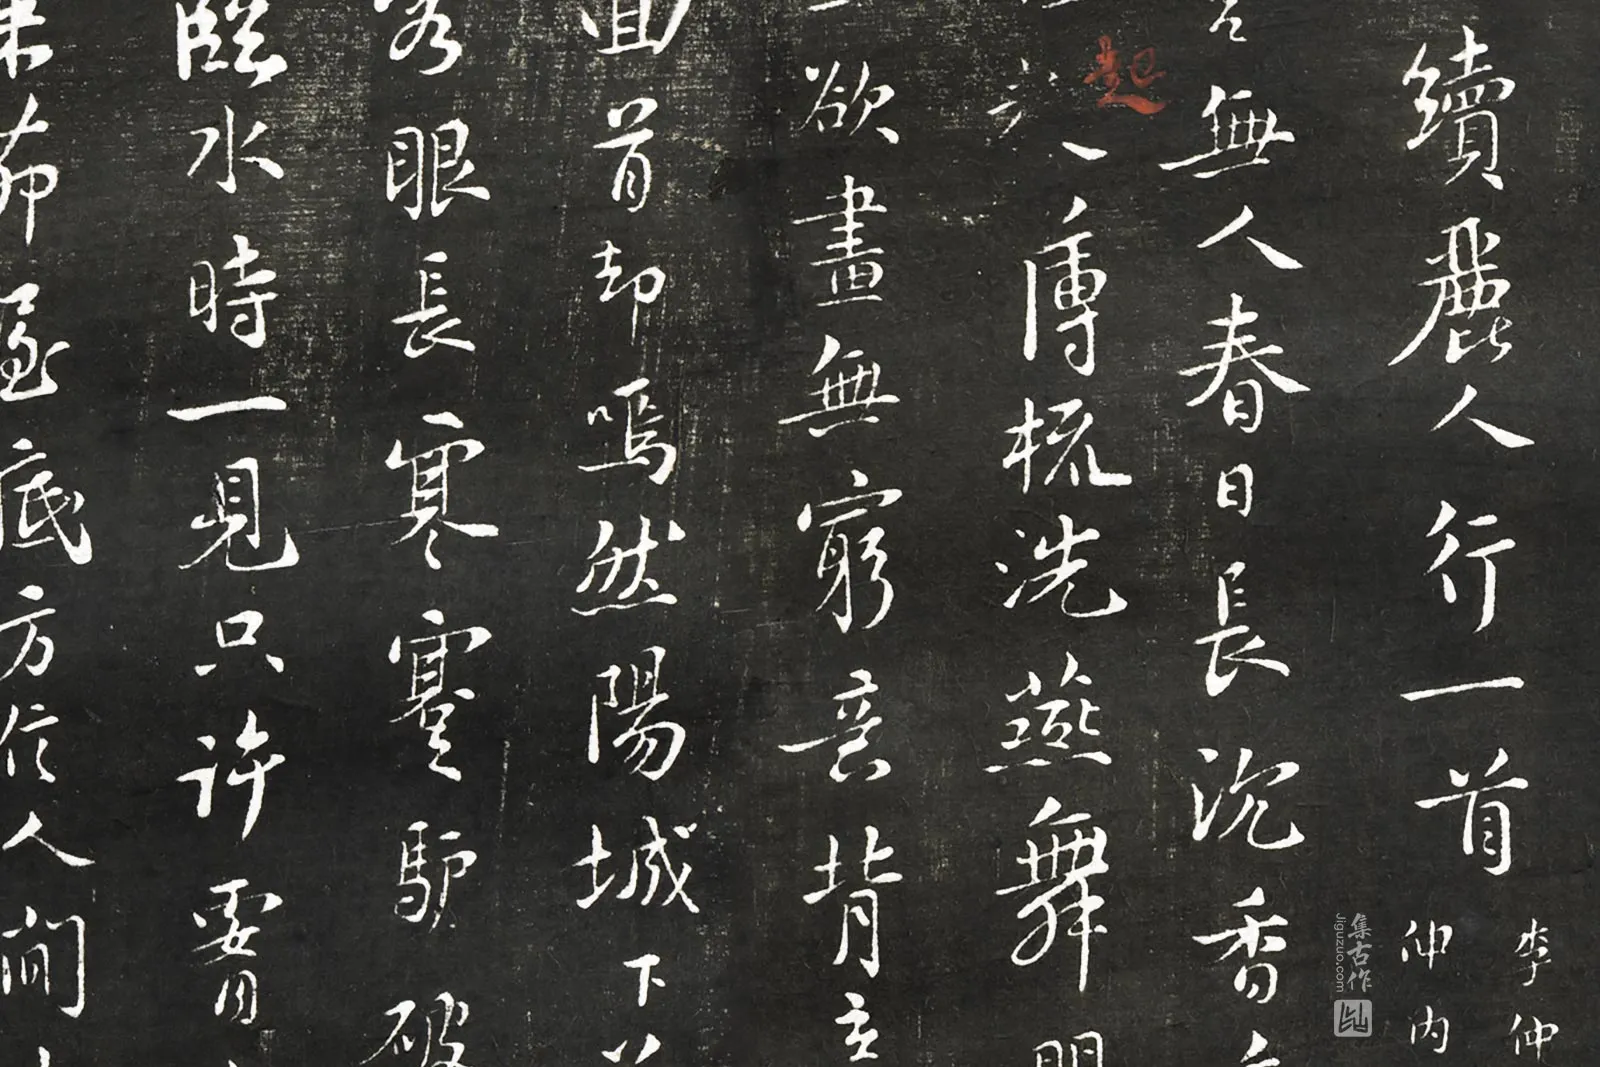 續麗人行一首
李仲
仲内
無人春日長沉香
起
薄梳洗燕舞
欲畫無窮意背立
回首却嫣然陽城下
客眼長寒蹇驢破
臨水時一見只許腰
來茅屋底方信人間
集古作
jiguzuo.com